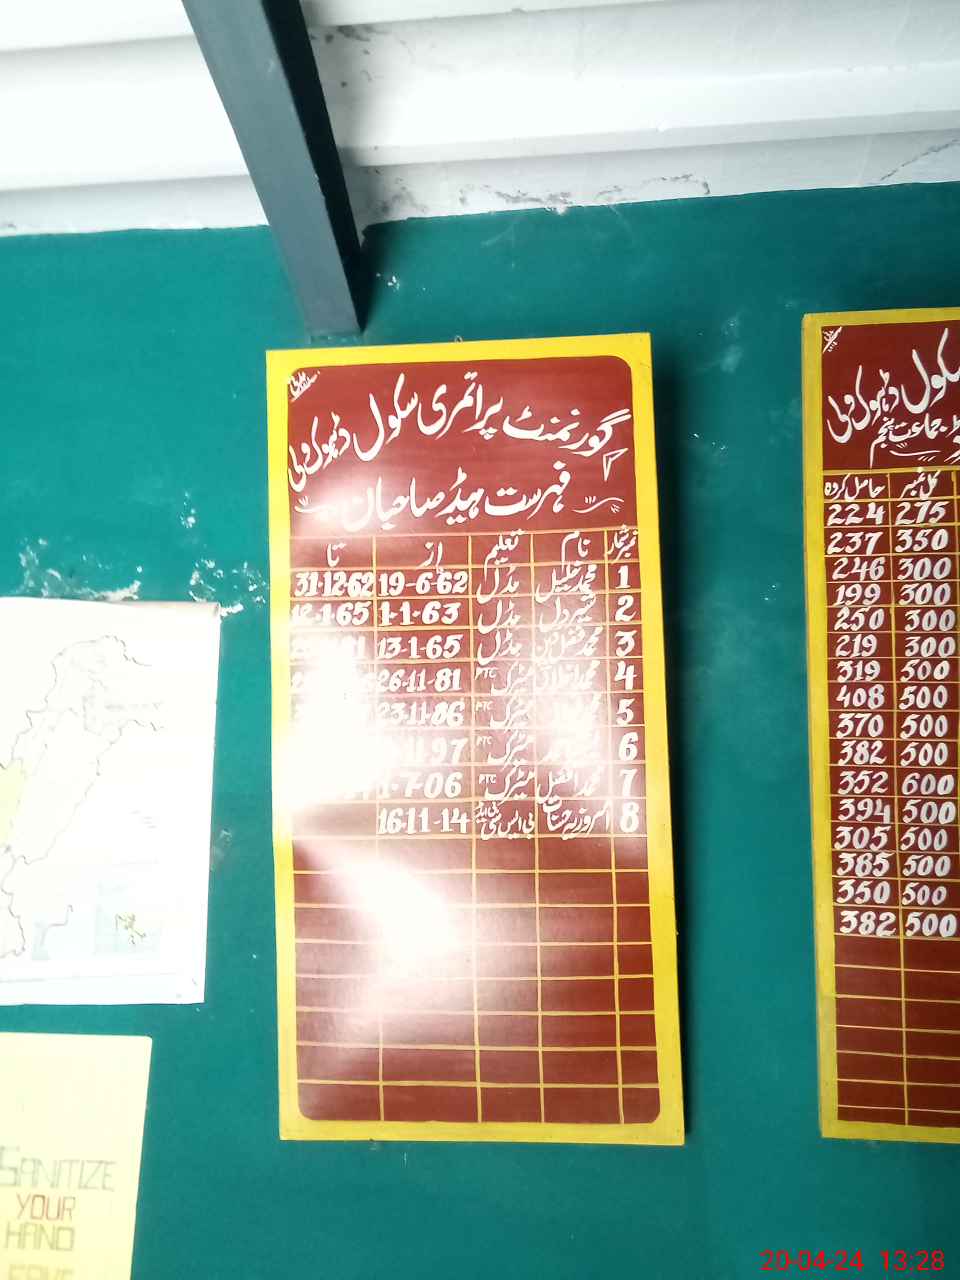 گورنمنٹ پرائمری سکول ڈھوک ولی
فہرست ہیڈ صاحبان
نمبر شمار نام تعلیم از تا
1 محمد خلیل مڈل 19-6-62 31-12-62
2 شیر دل مڈل 1-1-63 12-1-65
3 محمد مڈل 13-1-65
4 محمد میٹرک PTC 26-11-81
5 محمد میٹرک PTC 23-11-86
6 میٹرک PTC 11-97
7 محمد افضل میٹرک PTC 1-7-06
8 بی ایس سی بی ایڈ 16-11-14
سکول ڈھوک ولی
جماعت پنجم
کل نمبر حاصل کردہ
275 224
350 237
300 246
300 199
300 250
300 219
500 319
500 408
500 370
500 382
600 352
500 394
500 305
500 385
500 350
500 382
SANITIZE
YOUR
HAND
20-04-24 13:28